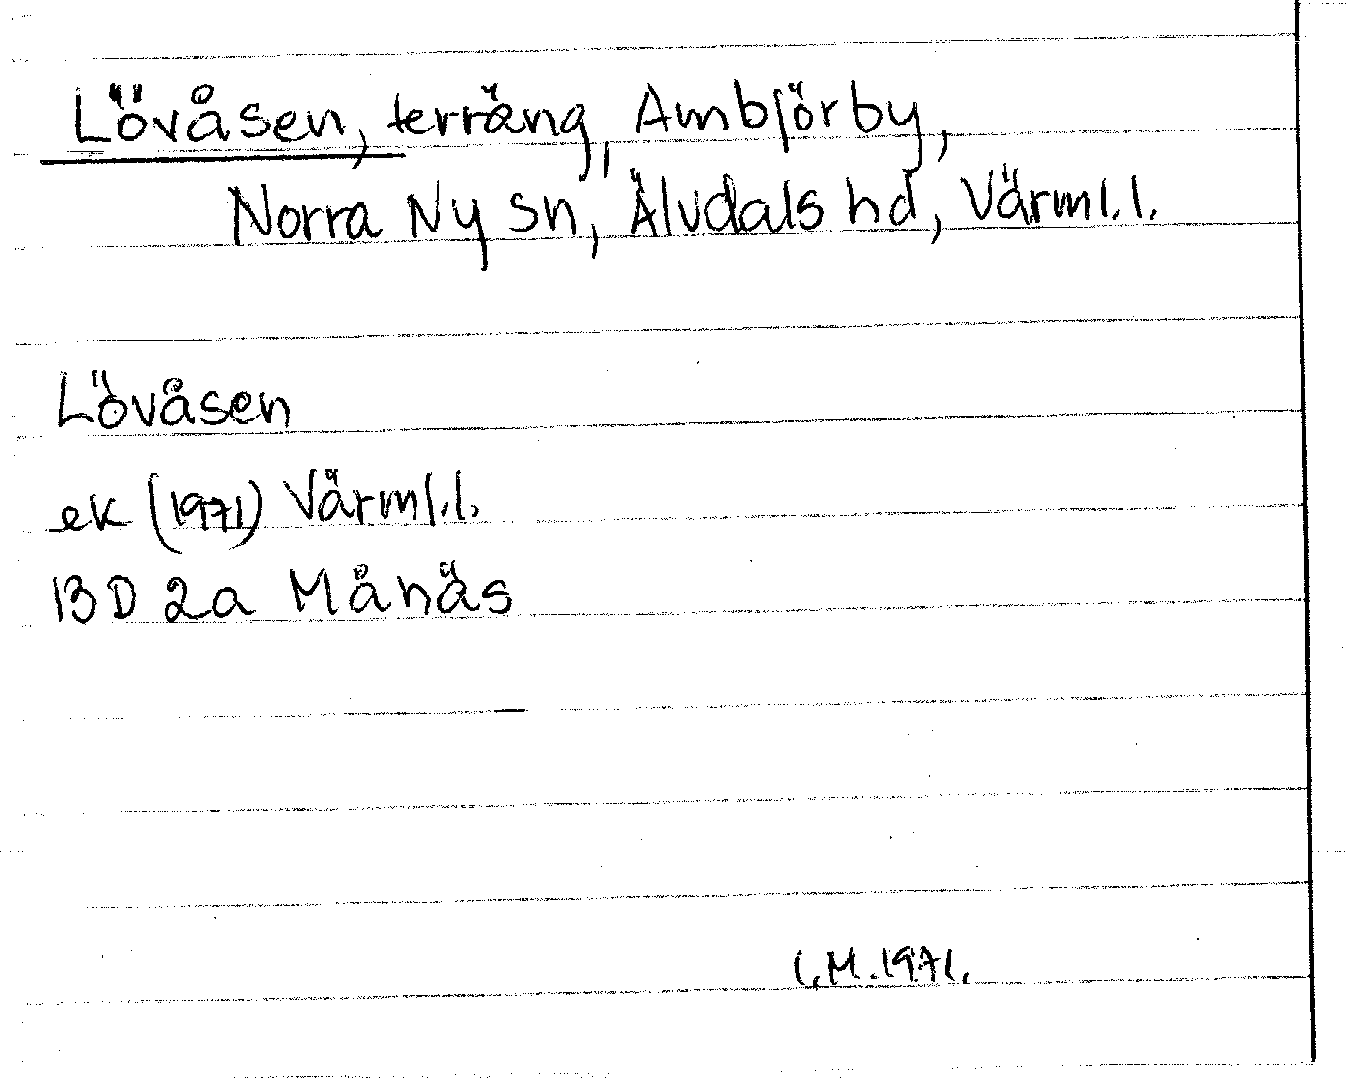 Lövåsen, terräng, Ambjörby,
Norra Ny sn, Älvdals hd, Värml.l.
Lövåsen
ek (1971) Värml.l.
13 D 2a Månäs
I.M. 1971.